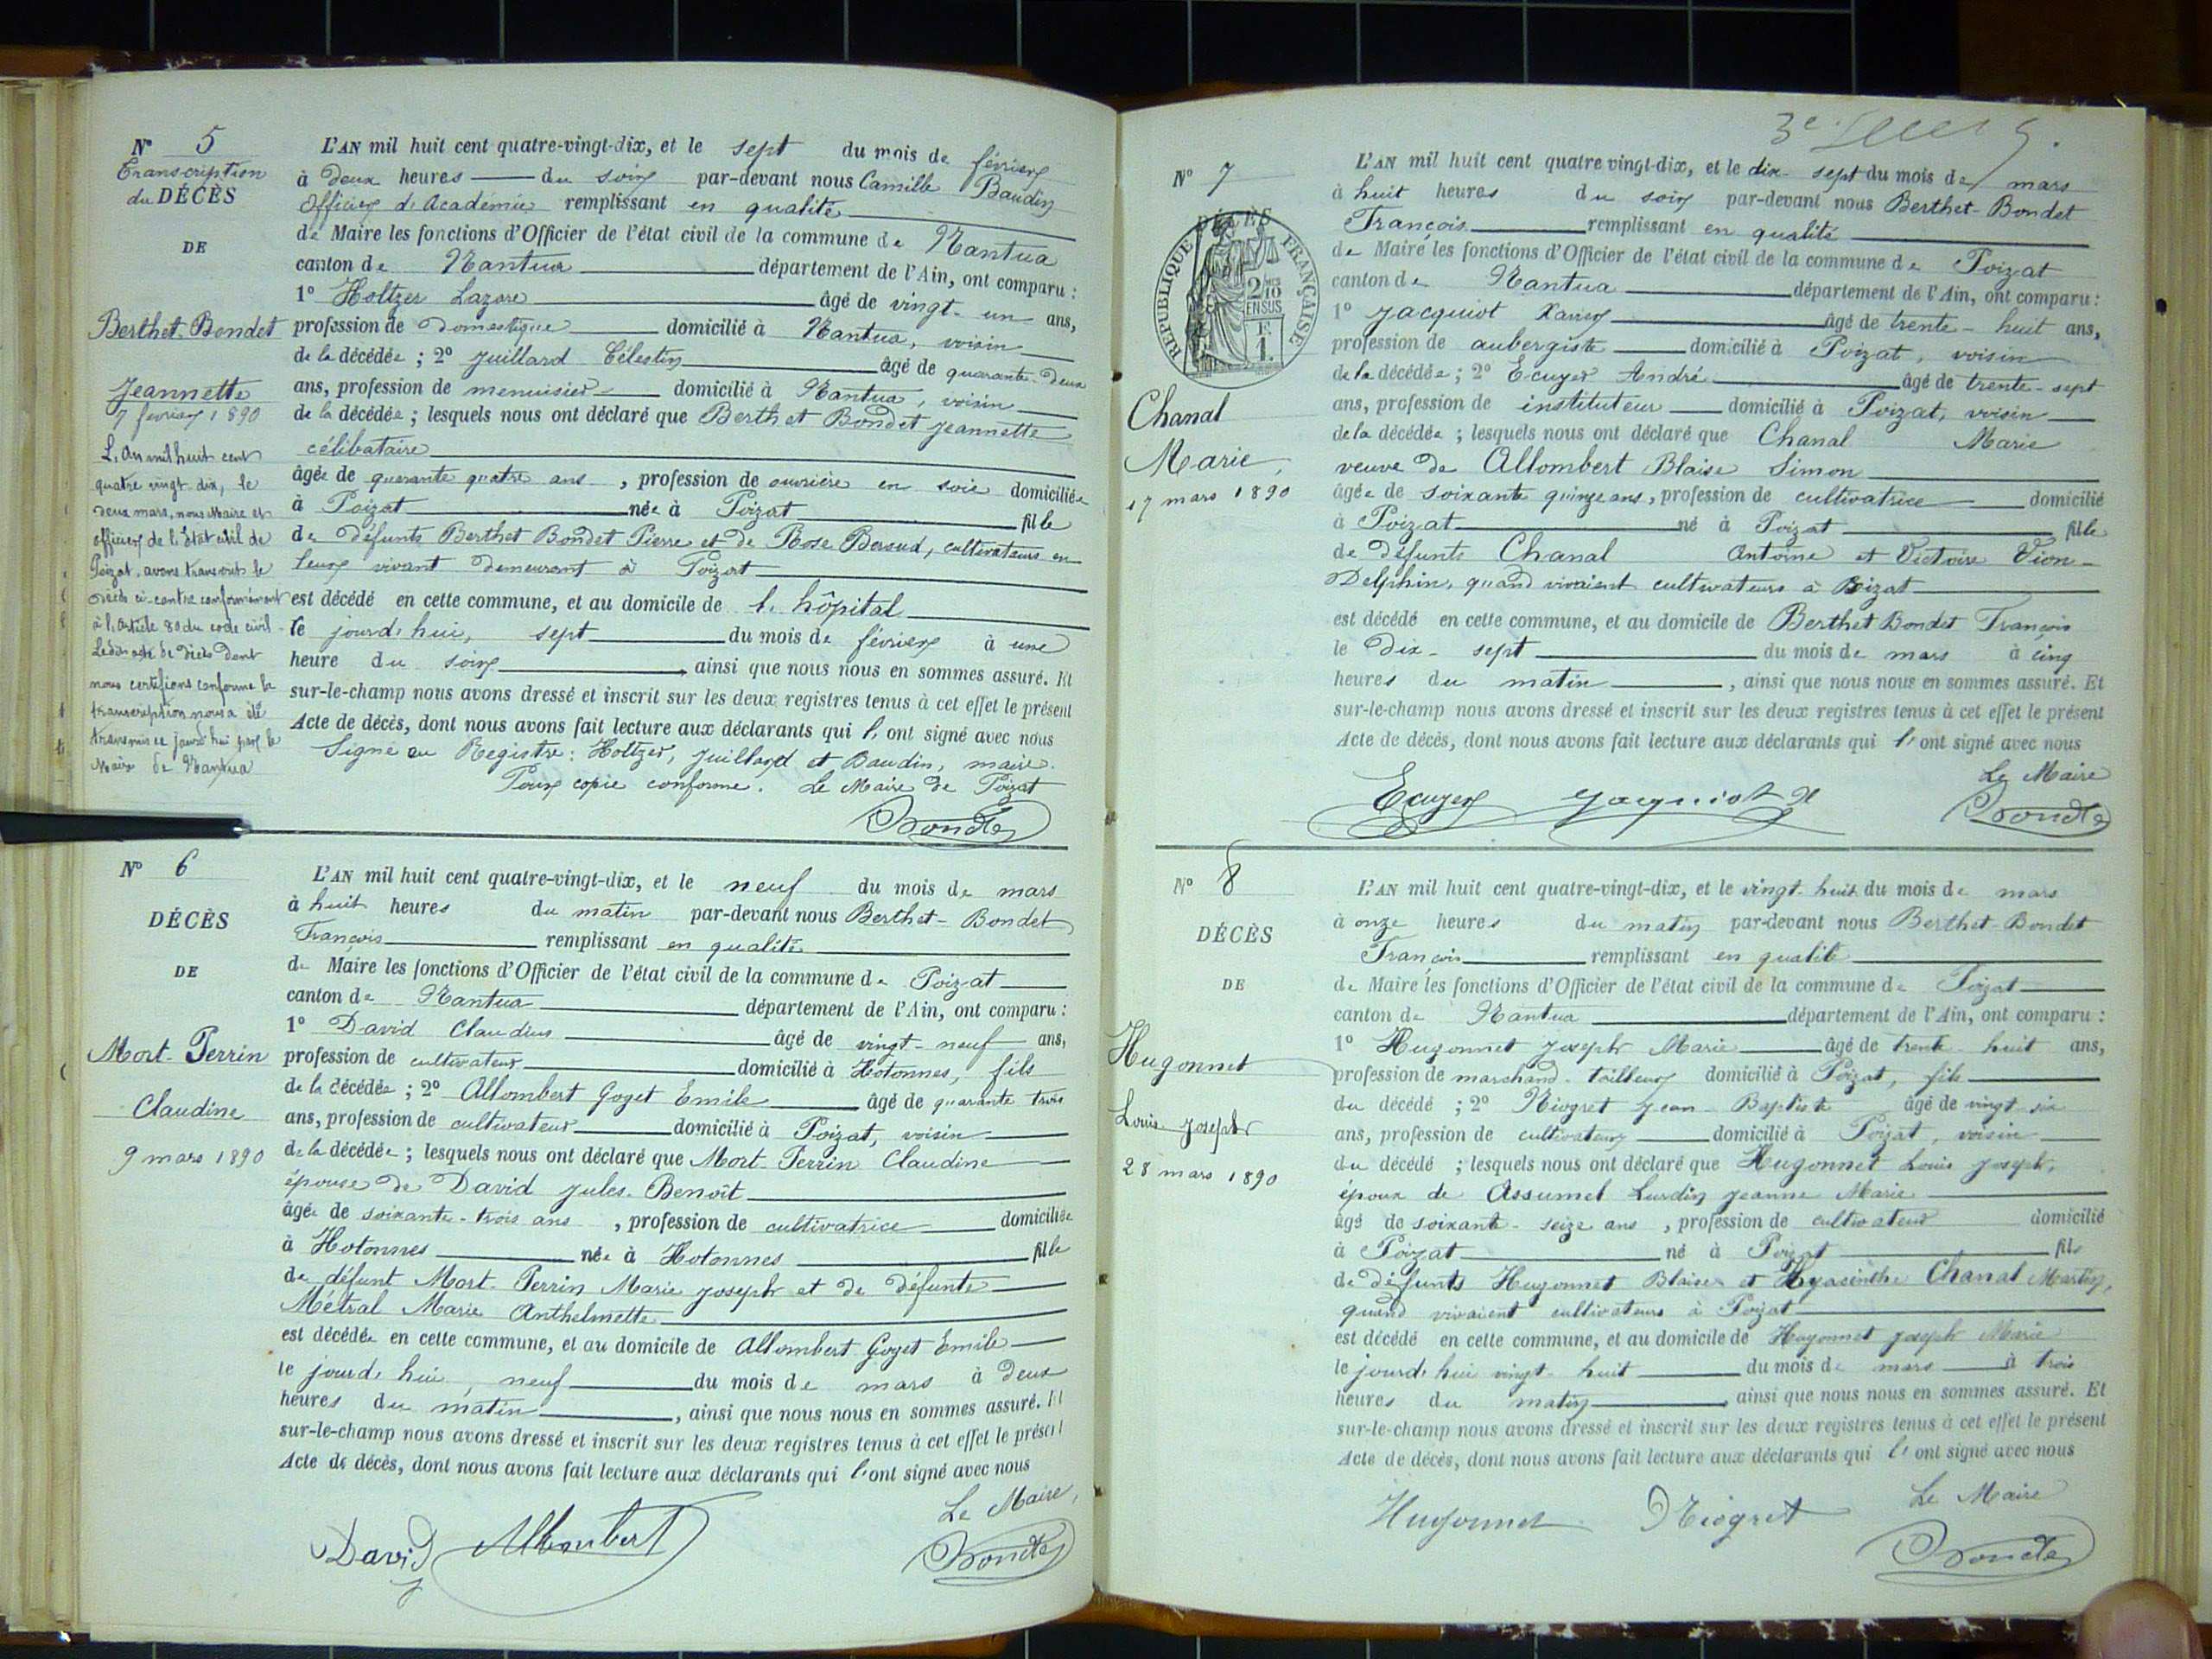 N° 5
Transcription
du DÉCÈS
DE
Berthet-Bondet
Jeannette
7 février 1890
L'an mil huit cent
quatre vingt-dix, le
deux mars, nous Maire et
officier de l'État civil de
Poizat, avons transcrit le
décès ci-contre conformément
à l'article 80 du code civil
Ledit acte de décès dont
nous certifions conforme la
transcription nous a été
transmis ce jourd'hui par le
Maire de Nantua
L'AN mil huit cent quatre-vingt-dix, et le sept du mois de février
à deux heures du soir par-devant nous Camille Baudin
officier d'Académie remplissant en qualité
de Maire les fonctions d'Officier de l'état civil de la commune de Nantua
canton de Nantua département de l'Ain, ont comparu :
1° Holtzer Lazare âgé de vingt-un ans,
profession de domestique domicilié à Nantua, voisin
de la décédée ; 2° Juillard Célestin âgé de quarante-deux
ans, profession de menuisier domicilié à Nantua, voisin
de la décédée ; lesquels nous ont déclaré que Berthet Bondet Jeannette
célibataire
âgée de quarante quatre ans, profession de ouvrière en soie domiciliée
à Poizat née à Poizat fille
de défunts Berthet Bondet Pierre et de Rose Persud, cultivateurs en
leur vivant demeurant à Poizat
est décédé en cette commune, et au domicile de l'hôpital
le jourd'hui, sept du mois de février à une
heure du soir, ainsi que nous nous en sommes assuré. Et
sur-le-champ nous avons dressé et inscrit sur les deux registres tenus à cet effet le présent
Acte de décès, dont nous avons fait lecture aux déclarants qui l'ont signé avec nous
Signé au Registre : Holtzer, Juillard et Baudin, maire.
Pour copie conforme. Le Maire de Poizat
Bondet
N° 6
DÉCÈS
DE
Mort-Perrin
Claudine
9 mars 1890
L'AN mil huit cent quatre-vingt-dix, et le neuf du mois de mars
à huit heures du matin par-devant nous Berthet-Bondet
François remplissant en qualité
de Maire les fonctions d'Officier de l'état civil de la commune de Poizat
canton de Nantua département de l'Ain, ont comparu :
1° David Claudius âgé de vingt-neuf ans,
profession de cultivateur domicilié à Hotonnes, fils
de la décédée ; 2° Allombert Goget Emile âgé de quarante trois
ans, profession de cultivateur domicilié à Poizat, voisin
de la décédée ; lesquels nous ont déclaré que Mort-Perrin Claudine
épouse de David Jules-Benoît
âgée de soixante-trois ans, profession de cultivatrice domiciliée
à Hotonnes née à Hotonnes fille
de défunt Mort-Perrin Marie Joseph et de défunte
Métral Marie Anthelmette
est décédée en cette commune, et au domicile de Allombert Goget Emile
le jourd'hui, neuf du mois de mars à deux
heures du matin, ainsi que nous nous en sommes assuré. Et
sur-le-champ nous avons dressé et inscrit sur les deux registres tenus à cet effet le présent
Acte de décès, dont nous avons fait lecture aux déclarants qui l'ont signé avec nous
Le Maire,
David Allombert Bondet
3e
N° 7
DÉCÈS
RÉPUBLIQUE FRANÇAISE
2/10 EN SUS
F. 1.
Chanal
Marie,
17 mars 1890
L'AN mil huit cent quatre vingt-dix, et le dix-sept du mois de mars
à huit heures du soir par-devant nous Berthet-Bondet
François remplissant en qualité
de Maire les fonctions d'Officier de l'état civil de la commune de Poizat
canton de Nantua département de l'Ain, ont comparu :
1° Jacquiot Xavier âgé de trente-huit ans,
profession de aubergiste domicilié à Poizat, voisin
de la décédée ; 2° Ecuyer André âgé de trente-sept
ans, profession de instituteur domicilié à Poizat, voisin
de la décédée ; lesquels nous ont déclaré que Chanal Marie
veuve de Allombert Blaise Simon
âgée de soixante quinze ans, profession de cultivatrice domicilié
à Poizat né à Poizat fille
de défunts Chanal Antoine et Victoire Vion-
Delphin, quand vivaient cultivateurs à Poizat
est décédé en cette commune, et au domicile de Berthet Bondet François
le dix-sept du mois de mars à cinq
heures du matin, ainsi que nous nous en sommes assuré. Et
sur-le-champ nous avons dressé et inscrit sur les deux registres tenus à cet effet le présent
Acte de décès, dont nous avons fait lecture aux déclarants qui l'ont signé avec nous
Le Maire
Ecuyer Jacquiot X Bondet
N° 8
DÉCÈS
DE
Hugonnet
Louis Joseph
28 mars 1890
L'AN mil huit cent quatre-vingt-dix, et le vingt-huit du mois de mars
à onze heures du matin par-devant nous Berthet-Bondet
François remplissant en qualité
de Maire les fonctions d'Officier de l'état civil de la commune de Poizat
canton de Nantua département de l'Ain, ont comparu :
1° Hugonnet Joseph Marie âgé de trente-huit ans,
profession de marchand-tailleur domicilié à Poizat, fils
du décédé ; 2° Niogret Jean-Baptiste âgé de vingt-six
ans, profession de cultivateur domicilié à Poizat, voisin
du décédé ; lesquels nous ont déclaré que Hugonnet Louis Joseph,
époux de Assumel Lurdin Jeanne Marie
âgé de soixante-seize ans, profession de cultivateur domicilié
à Poizat né à Poizat fils
de défunts Hugonnet Blaise et Hyacinthe Chanal Martin,
quand vivaient cultivateurs à Poizat
est décédé en cette commune, et au domicile de Hugonnet Joseph Marie
le jourd'hui vingt-huit du mois de mars à trois
heures du matin, ainsi que nous nous en sommes assuré. Et
sur-le-champ nous avons dressé et inscrit sur les deux registres tenus à cet effet le présent
Acte de décès, dont nous avons fait lecture aux déclarants qui l'ont signé avec nous
Le Maire
Hugonnet Niogret Bondet